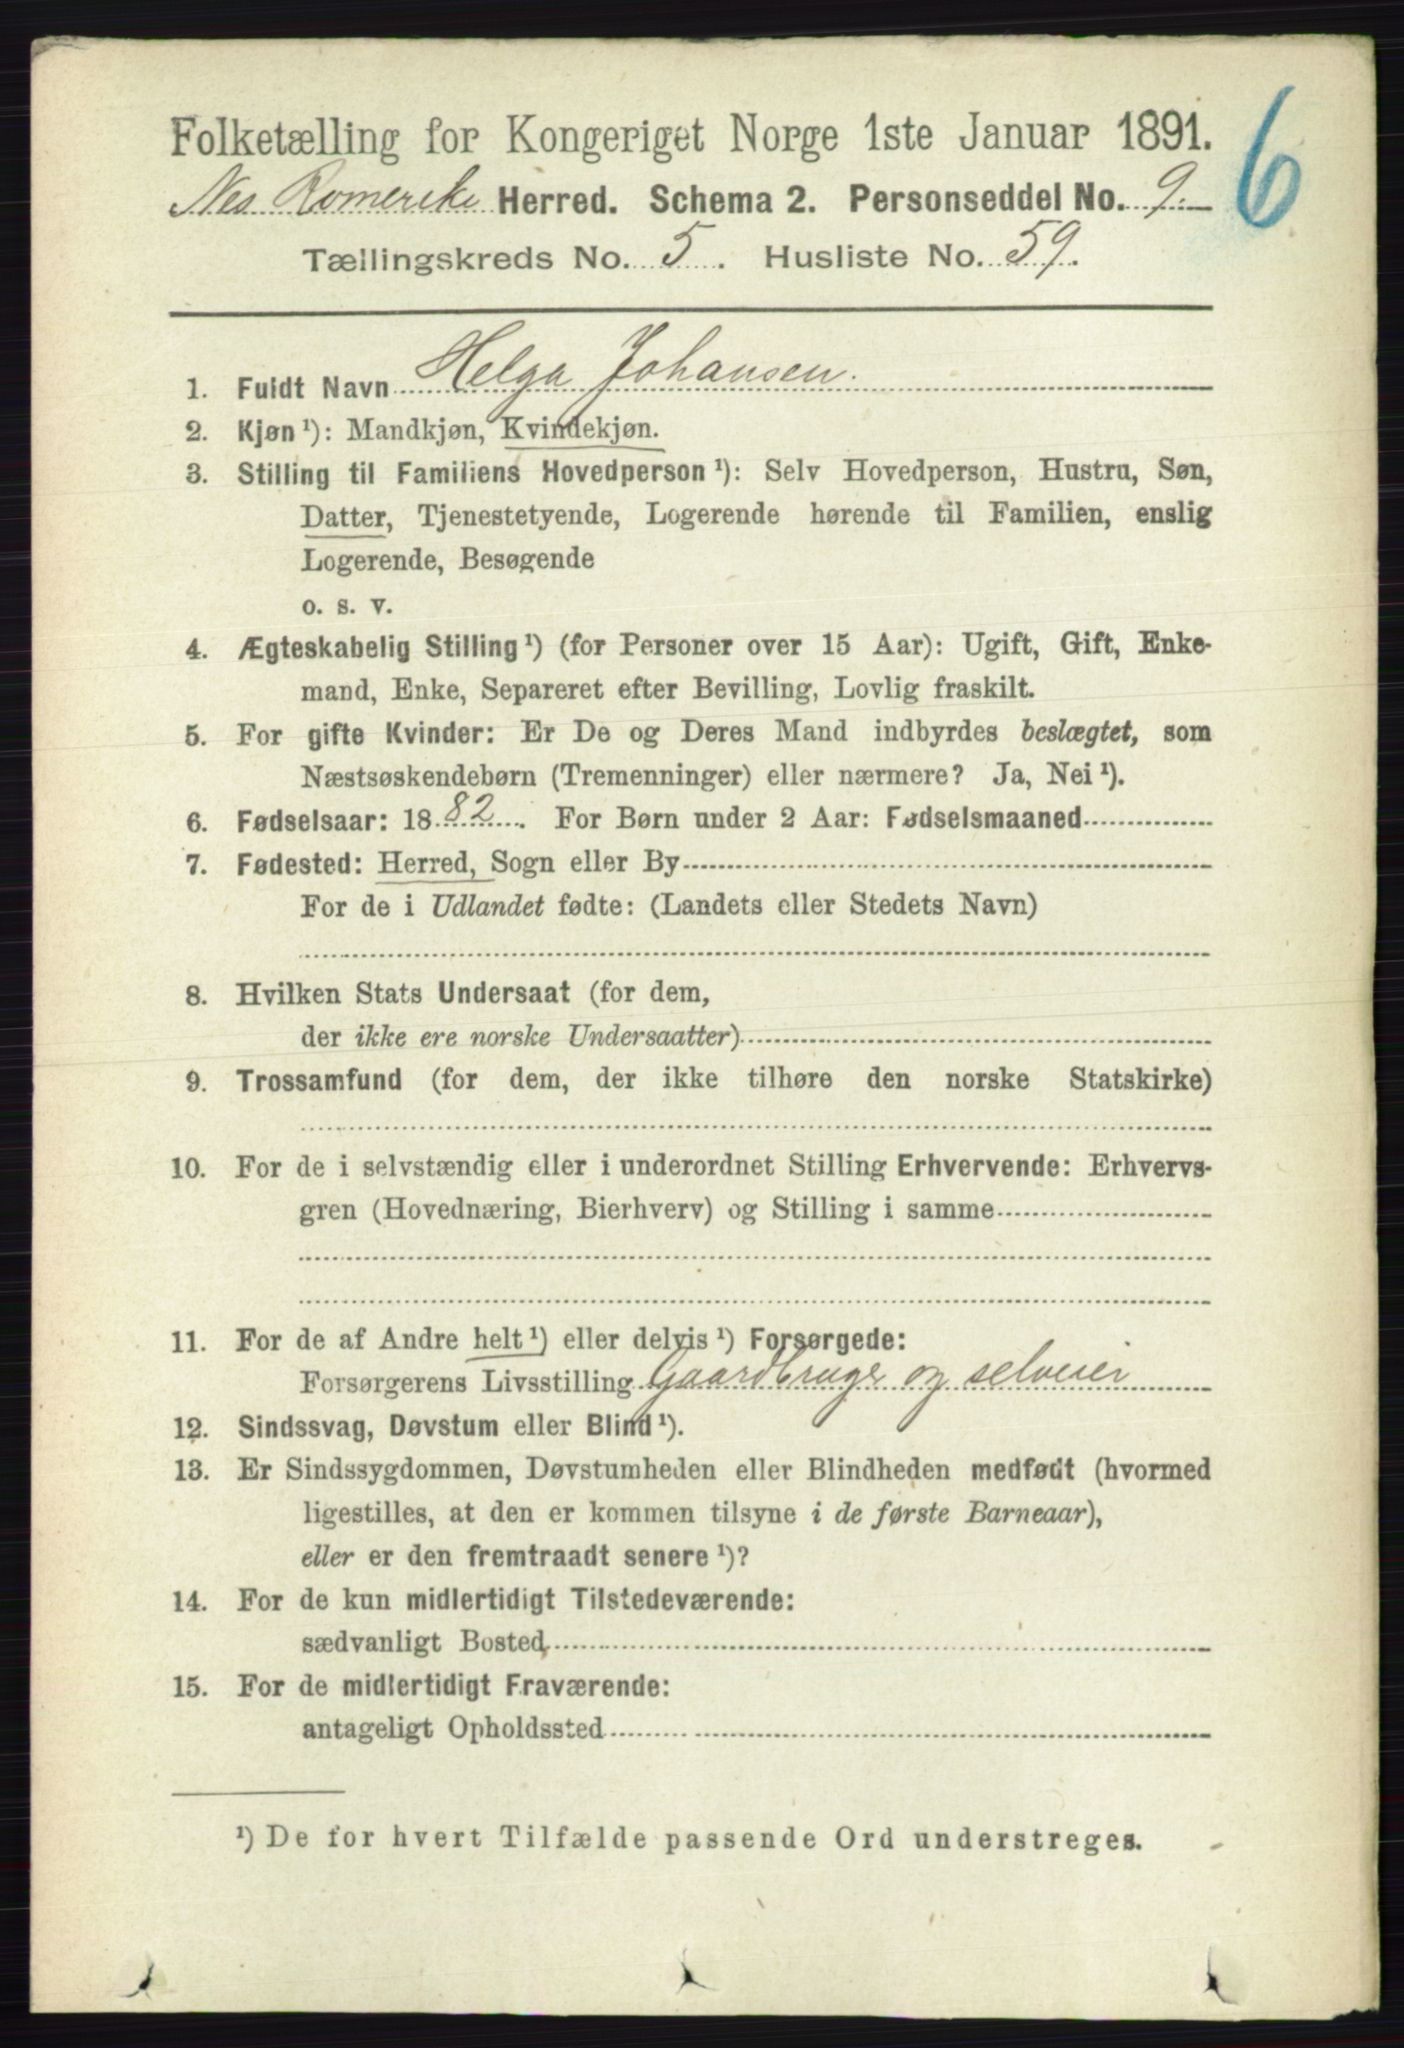 Folketælling for Kongeriget Norge 1ste Januar 1891.
6
Nes Romerike Herred. Schema 2. Personseddel No. 9.
Tællingskreds No. 5. Husliste No. 59.
1. Fuldt Navn Helga Johansen.
2. Kjøn ¹): Mandkjøn, Kvindekjøn.
3. Stilling til Familiens Hovedperson ¹): Selv Hovedperson, Hustru, Søn,
Datter, Tjenestetyende, Logerende hørende til Familien, enslig
Logerende, Besøgende
o. s. v.
4. Ægteskabelig Stilling ¹) (for Personer over 15 Aar): Ugift, Gift, Enke-
mand, Enke, Separeret efter Bevilling, Lovlig fraskilt.
5. For gifte Kvinder: Er De og Deres Mand indbyrdes beslægtet, som
Næstsøskendebørn (Tremenninger) eller nærmere? Ja, Nei ¹).
6. Fødselsaar: 1882. For Børn under 2 Aar: Fødselsmaaned
7. Fødested: Herred, Sogn eller By
For de i Udlandet fødte: (Landets eller Stedets Navn)
8. Hvilken Stats Undersaat (for dem,
der ikke ere norske Undersaatter)
9. Trossamfund (for dem, der ikke tilhøre den norske Statskirke)
10. For de i selvstændig eller i underordnet Stilling Erhvervende: Erhvervs-
gren (Hovednæring, Bierhverv) og Stilling i samme
11. For de af Andre helt ¹) eller delvis ¹) Forsørgede:
Forsørgerens Livsstilling Gaardbruger og selveier
12. Sindssvag, Døvstum eller Blind ¹).
13. Er Sindssygdommen, Døvstumheden eller Blindheden medfødt (hvormed
ligestilles, at den er kommen tilsyne i de første Barneaar),
eller er den fremtraadt senere ¹)?
14. For de kun midlertidigt Tilstedeværende:
sædvanligt Bosted
15. For de midlertidigt Fraværende:
antageligt Opholdssted
¹) De for hvert Tilfælde passende Ord understreges.